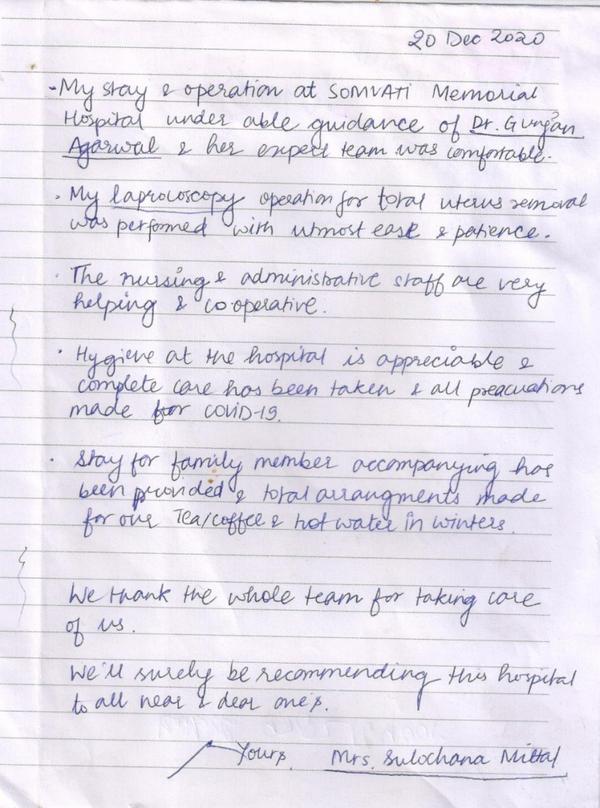 20 Dec 2020
- My stay & operation at SOMVATI Memorial
Hospital under able guidance of Dr. Gunjan
Agarwal & her expert team was comfortable.
. My laproscoscopy operation for total uterus removal
was performed with utmost ease & patience.
. The nursing & administrative staff are very
helping & co operative.
. Hygiene at the hospital is appreciable &
complete care has been taken & all preacuations
made for COVID-19.
. Stay for family member accompanying has
been provided & total arrangments made
for our Tea/coffee & hot water in winters.
We thank the whole team for taking care
of us.
We'll surely be recommending this hospital
to all near & dear one's.
Yours
Mrs. Sulochana Mittal